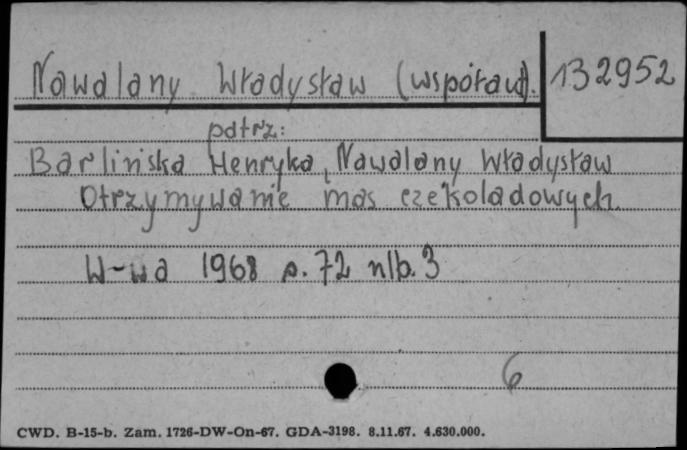 Nawalany Władysław (współaut). 132952
patrz:
Barlińska Henryka, Nawalany Władysław
Otrzymywanie mas czekoladowych.
W-wa 1968 s. 72 nlb. 3
6
CWD. B-15-b. Zam. 1726-DW-On-67. GDA-3198. 8.11.67. 4.630.000.